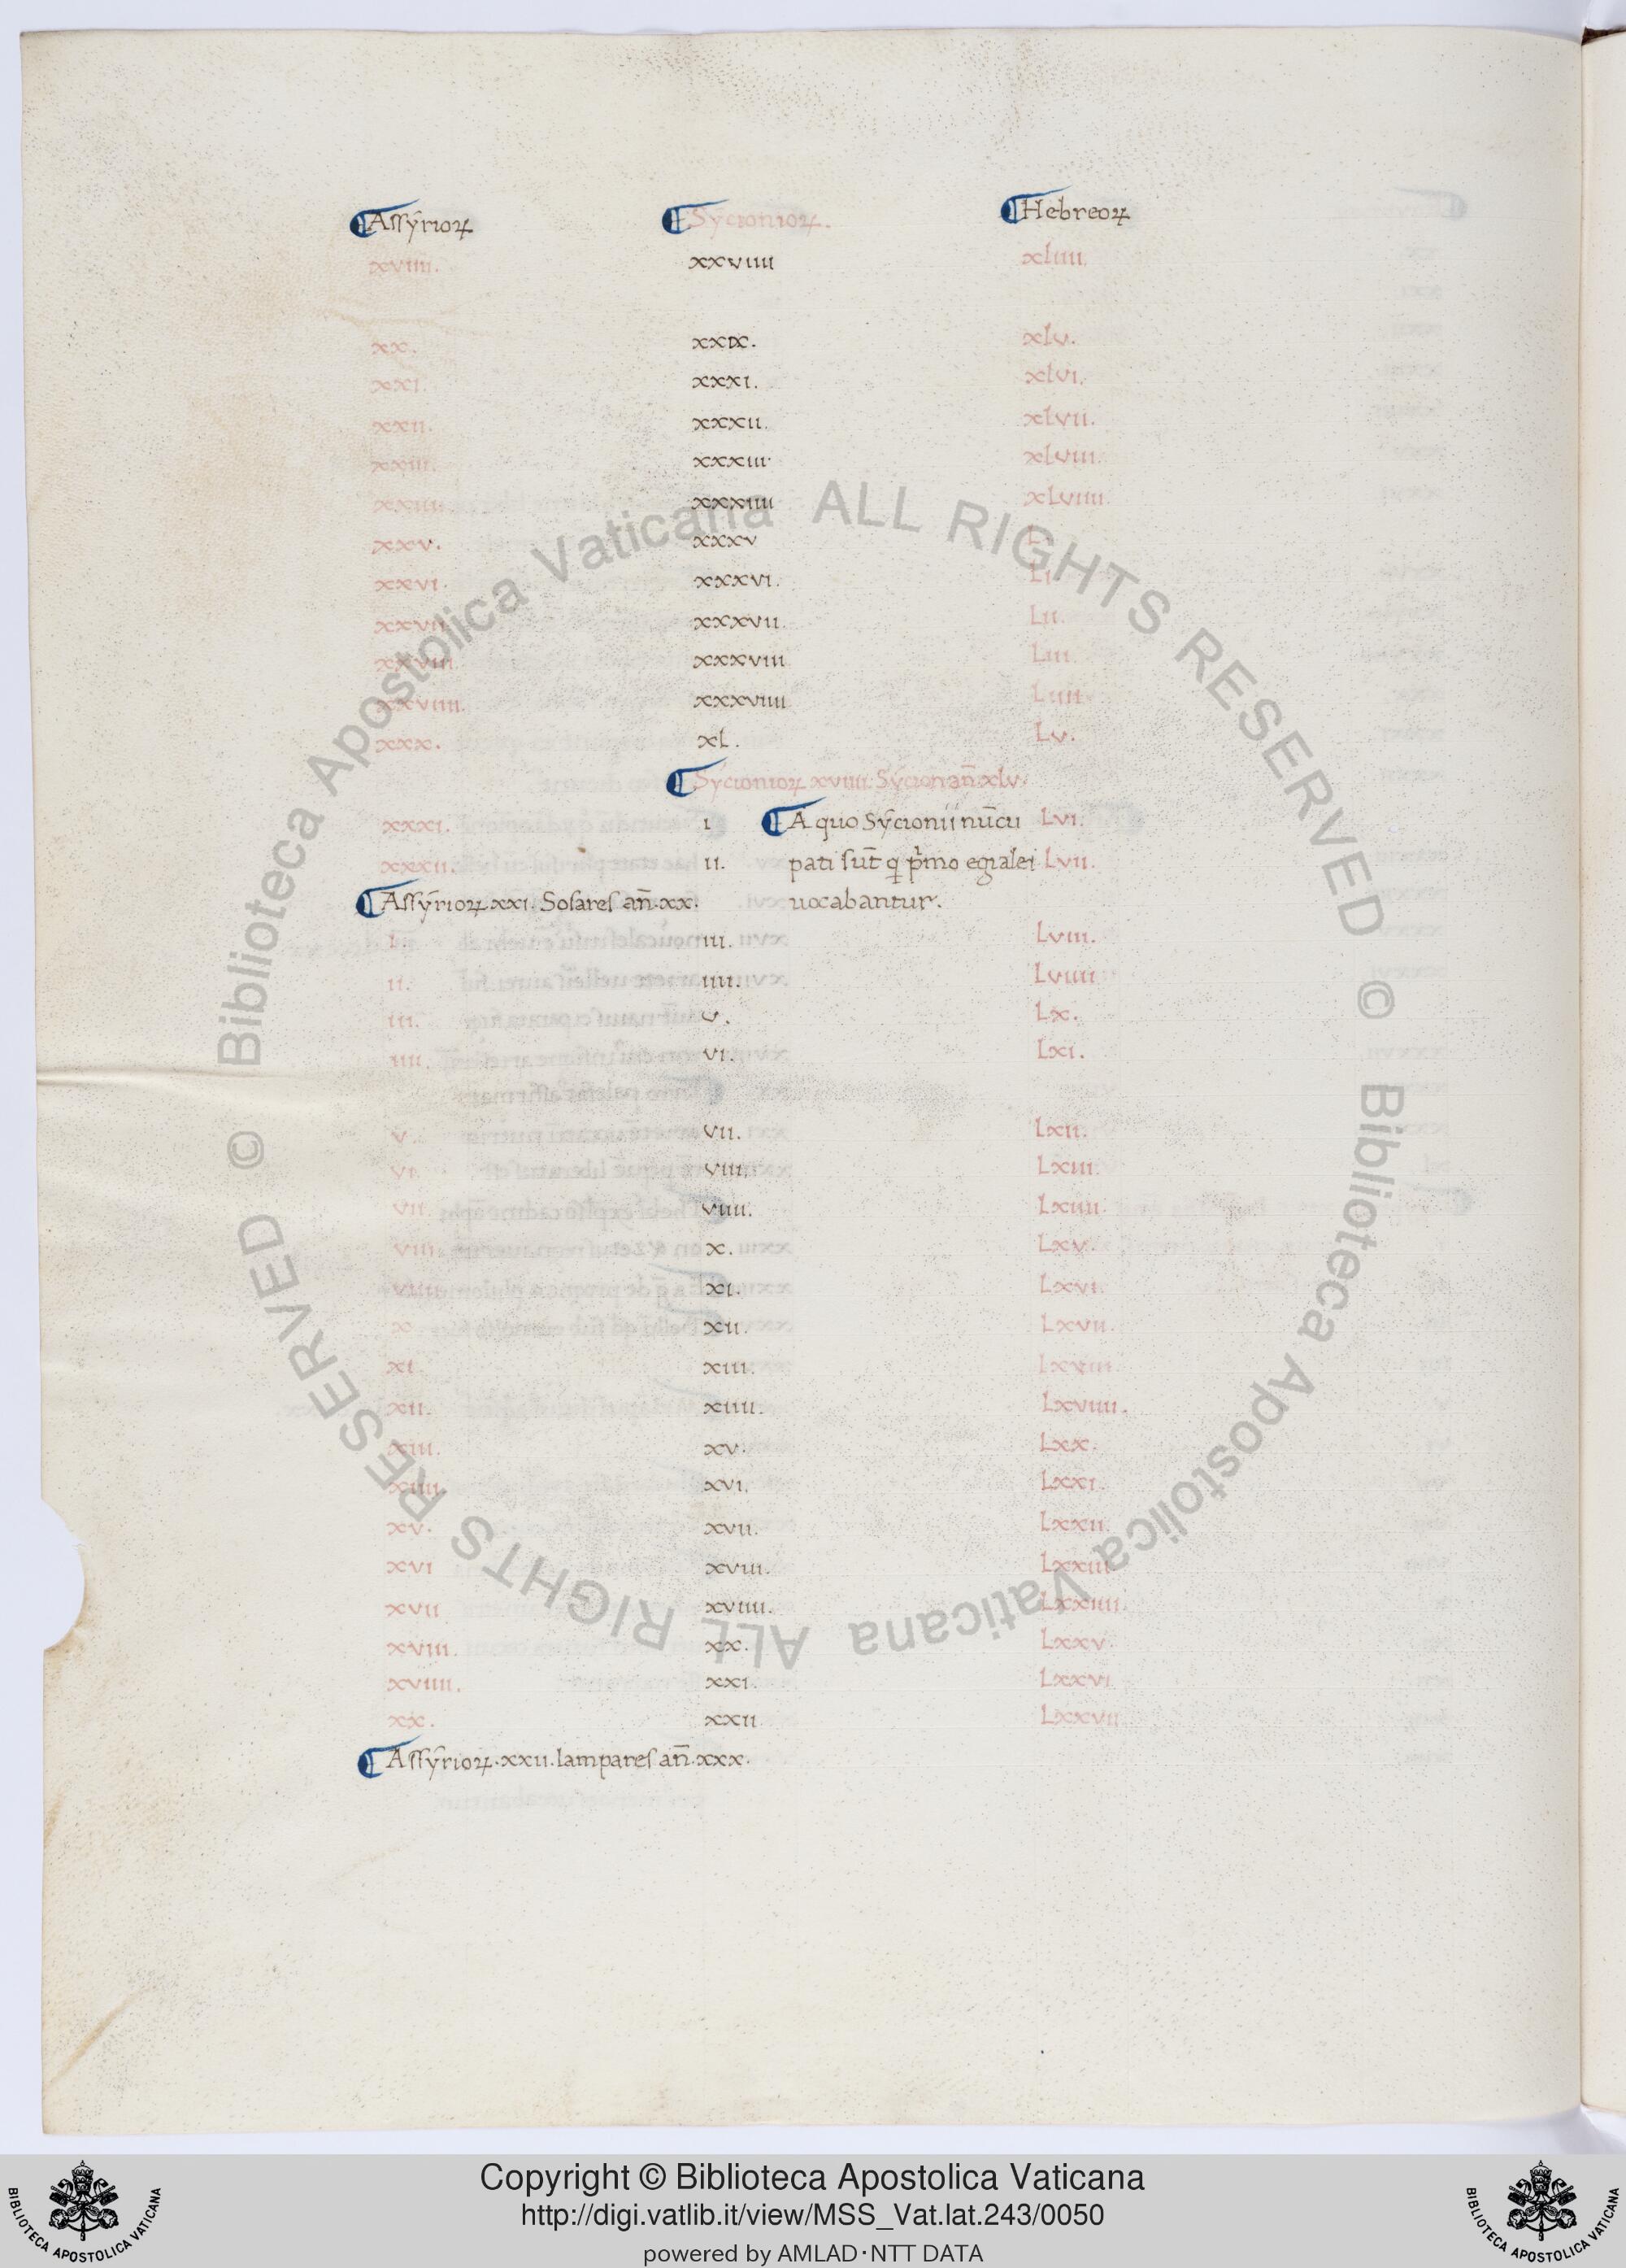 Assyrioꝝ Sycionioꝝ. Hebreoꝝ
xviiii. xxviiii xliiii.
xx. xxix. xlv.
xxi. xxxi. xlvi.
xxii. xxxii. xlvii.
xxiii. xxxiii. xlviii.
xxiiii. xxxiiii xLviiii.
xxv. xxxv L.
xxvi. xxxvi. Li
xxvii. xxxvii. Lii.
xxviii. xxxviii Liii
xxviiii. xxxviiii Liiii
xxx. xL. Lv.
Sycionioꝝ xviiii. Sycion an̄ xlv.
xxxi. i A quo Sycionii nūcu Lvi.
xxxii. ii. pati sūt q p̲mo egialei Lvii.
Assyrioꝝ. xxi. Sosares an̄. xx. uocabantur.
i. iii. Lviii.
ii. iiii. Lviiii
iii. v. Lx.
iiii. vi. Lxi.
v. vii. Lxii.
vi. viii. Lxiii.
vii. viiii. Lxiiii.
viii. x. Lxv.
viiii xi. Lxvi.
x xii. Lxvii.
xi. xiii. Lxviii.
xii. xiiii. Lxviiii.
xiii. xv. Lxx.
xiiii. xvi. Lxxi.
xv. xvii. Lxxii.
xvi xviii. Lxxiii
xvii xviiii. Lxxiiii.
xviii. xx. Lxxv.
xviiii. xxi. Lxxvi
xx. xxii Lxxvii
Assyrioꝝ. xxii. lampares an̄. xxx.
© Biblioteca Apostolica Vaticana ALL RIGHTS RESERVED
© Biblioteca Apostolica Vaticana ALL RIGHTS RESERVED
Copyright © Biblioteca Apostolica Vaticana
http://digi.vatlib.it/view/MSS_Vat.lat.243/0050
powered by AMLAD·NTT DATA
BIBLIOTECA APOSTOLICA VATICANA
BIBLIOTECA APOSTOLICA VATICANA